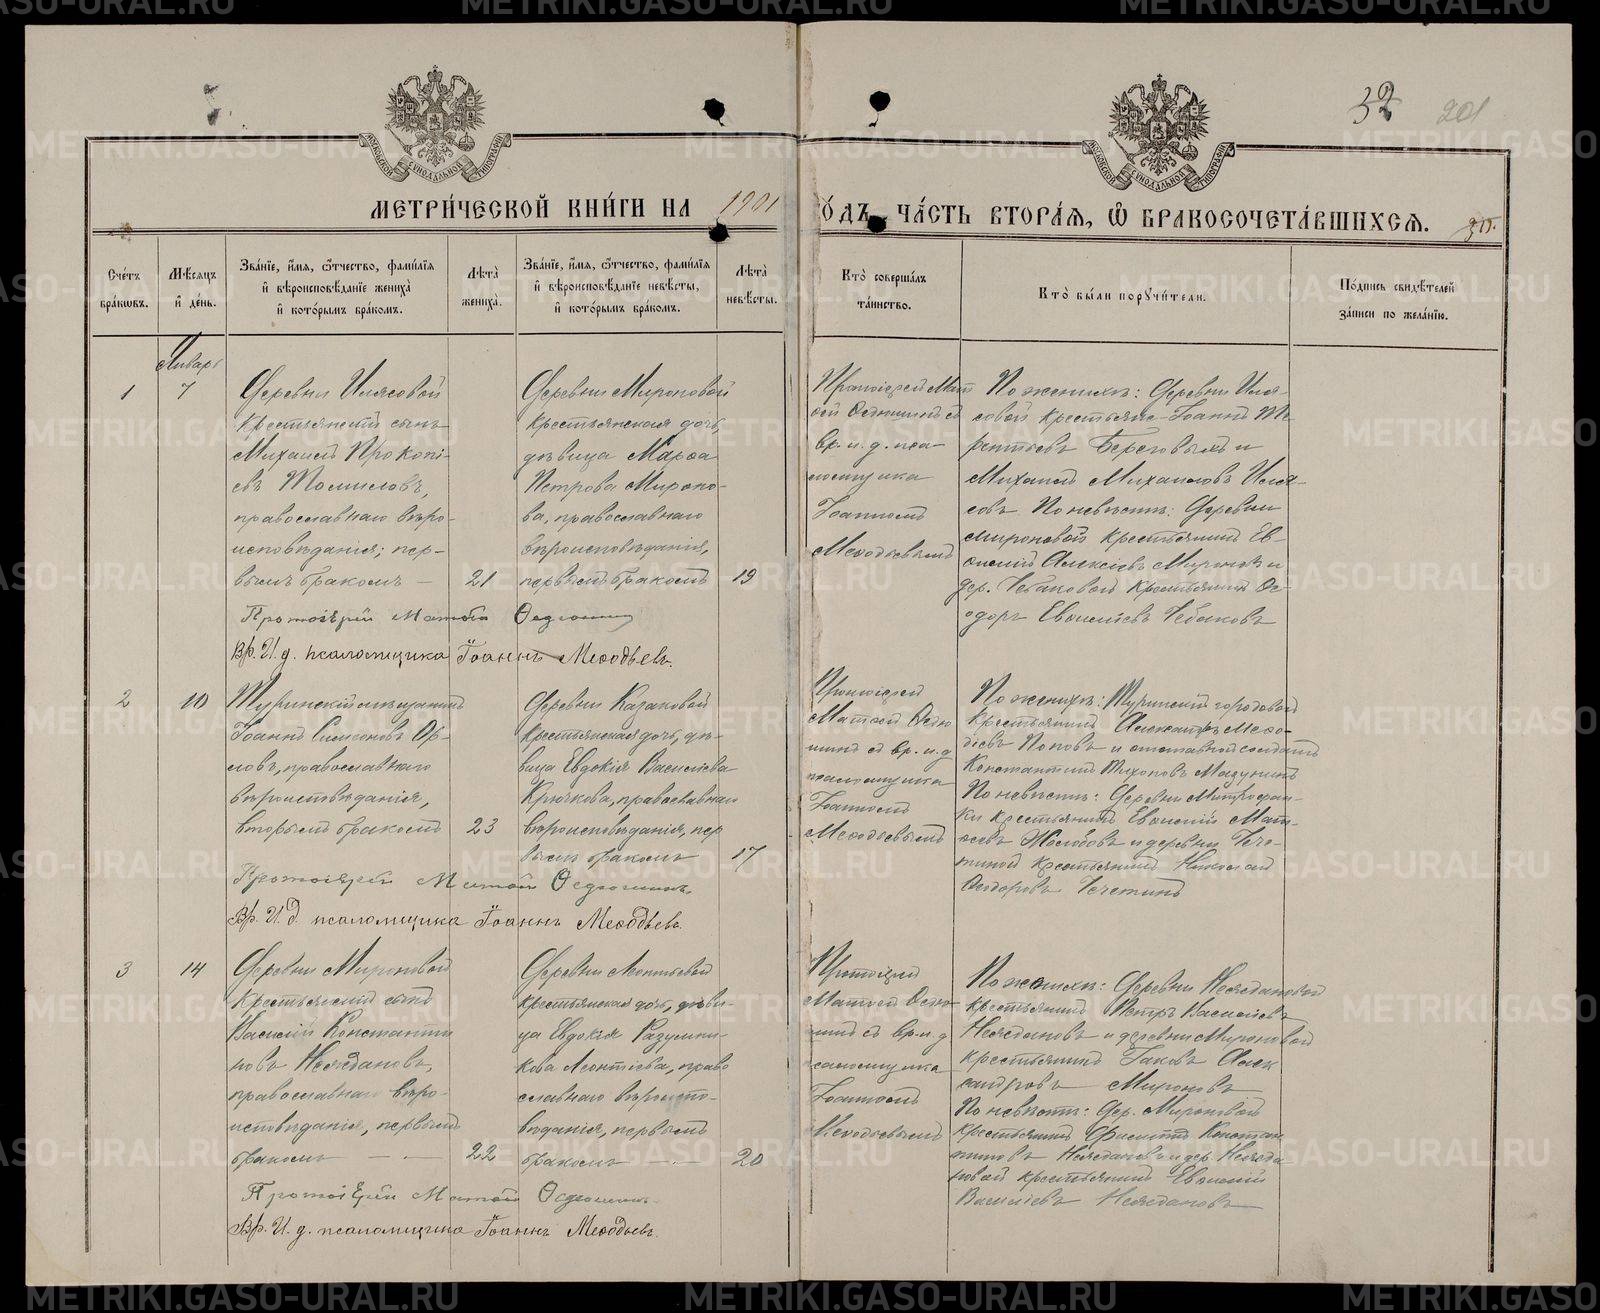 32
201
МОСКОВСКОЙ СѴНОДАЛЬНОЙ ТИПОГРАФІИ
МОСКОВСКОЙ СѴНОДАЛЬНОЙ ТИПОГРАФІИ
МЕТРИ́ЧЕСКОЙ КНИ́ГИ НА 1901
О́ДЪ, ЧА́СТЬ ВТОРА́Ѧ, Ѽ БРАКОСОЧЕТА́ВШИХСѦ.
Сче́тъ бра́кѡвъ.
Мѣ́сѧцъ и҆ де́нь.
Зва́нїе, и҆́мѧ, ѻ҆́тчество, фами́лїѧ и҆ вѣроисповѣ́данїе жениха̀ и҆ кото́рымъ бра́комъ.
Лѣ́та жениха̀.
Зва́нїе, и҆́мѧ, ѻ҆́тчество, фами́лїѧ и҆ вѣроисповѣ́данїе невѣ́сты, и҆ кото́рымъ бра́комъ.
Лѣ́та невѣ́сты.
Кто̀ соверша́лъ та́инство.
Кто̀ бы́ли порꙋчи́тели.
По́дпись свидѣ́телей за́писи по жела́нїю.
Январь
1
7
Деревни Илясовой
крестьянскій сынъ
Михаилъ Прокопі-
евъ Томиловъ,
православнаго вѣро-
исповѣданія; пер-
вымъ бракомъ —
21
Деревни Мироновой
крестьянская дочь,
дѣвица Марѳа
Петрова Мироно-
ва, православнаго
вѣроисповѣданія,
первымъ бракомъ
19
Протоіерей Мат
ѳей Ѳедюшинъ съ
вр. и. д. пса-
ломщика
Іоанномъ
Меѳодьевымъ
По женихѣ: Деревни Иля-
совой крестьяне Іоаннъ Те-
рентьевъ Береговыхъ и
Михаилъ Михаиловъ Иля-
совъ По невѣстѣ: Деревни
Мироновой крестьянинъ Ев-
ѳимій Алексіевъ Мироновъ и
дер. Чебаковой крестьянинъ Ѳе-
одоръ Евѳиміевъ Чебаковъ
Протоіерей Матѳей Ѳедюшинъ
Вр. И. д. псаломщика Іоаннъ Меѳодьевъ.
2
10
Туринскій мѣщанинъ
Іоаннъ Симеоновъ Ор-
ловъ, православнаго
вѣроисповѣданія,
вторымъ бракомъ
23
Деревни Казаковой
крестьянская дочь, дѣ-
вица Евдокія Василіева
Крючкова, православнаго
вѣроисповѣданія, пер
вымъ бракомъ
17
Протоіерей
Матѳей Ѳедю
шинъ съ вр. и. д
псаломщика
Іоанномъ
Меѳодьевымъ
По женихѣ: Туринскій городовой
крестьянинъ Александръ Меѳо-
діевъ Поповъ и отставной солдатъ
Константинъ Тихоновъ Мазунинъ
По невѣстѣ: Деревни Митрофан-
ки крестьянинъ Евѳимій Мат-
ѳеевъ Жолобовъ и деревни Чече-
тиной крестьянинъ Николай
Ѳеодоровъ Чечетинъ
Протоіерей Матѳей Ѳедюшинъ.
Вр. И. д. псаломщика Іоаннъ Меѳодьевъ.
3
14
Деревни Мироновой
крестьянскій сынъ
Василій Константи
новъ Неждановъ,
православнаго вѣро-
исповѣданія, первымъ
бракомъ — -
22
Деревни Леонтьевой
крестьянская дочь, дѣви-
ца Евдокія
Леонтіева, право
славнаго вѣроиспо-
вѣданія, первымъ
бракомъ — -
20
Протоіерей
Матѳей Ѳедю
шинъ съ вр. и. д
псаломщика
Іоанномъ
Меѳодьевымъ
По женихѣ: Деревни Неждановой
крестьянинъ Петръ Василіевъ
Неждановъ и деревни Мироновой
крестьянинъ Іаковъ Алек
сандровъ Мироновъ
По невѣстѣ: Дер. Мироновой
крестьянинъ Филиппъ Констан
тиновъ Неждановъ и дер. Нежда
новой крестьянинъ Евѳимій
Василіевъ Неждановъ
Протоіерей Матѳей Ѳедюшинъ.
Вр. И. д. псаломщика Іоаннъ Меѳодьевъ.
METRIKI.GASO-URAL.RU